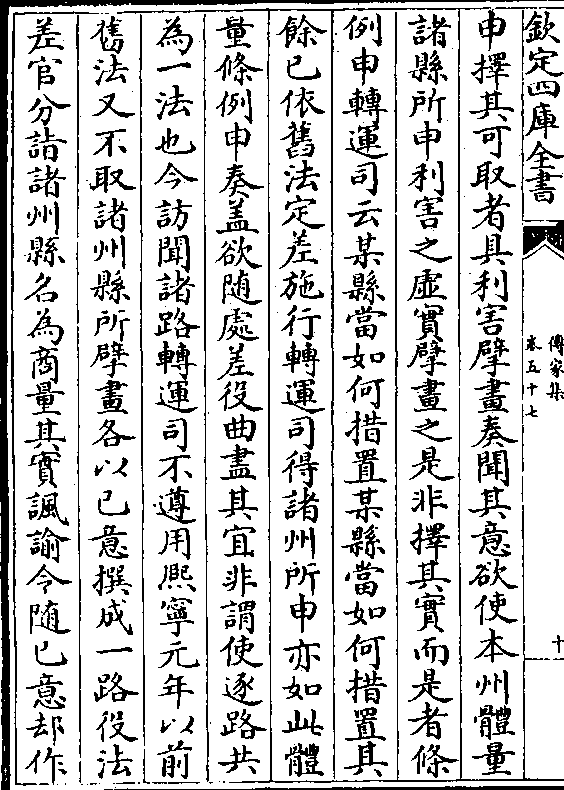 欽定四庫全書
傳家集
卷五十七
十
申擇其可取者具利害擘畫奏聞其意欲使本州體量
諸縣所申利害之虛實擘畫之是非擇其實而是者條
例申轉運司云某縣當如何措置某縣當如何措置其
餘已依舊法定差施行轉運司得諸州所申亦如此體
量條例申奏盖欲随處差役曲盡其宜非謂使逐路共
為一法也今訪聞諸路轉運司不遵用熈寧元年以前
舊法又不取諸州縣所擘畫各以已意撰成一路役法
差官分詣諸州縣名為商量其實諷諭令随已意却作